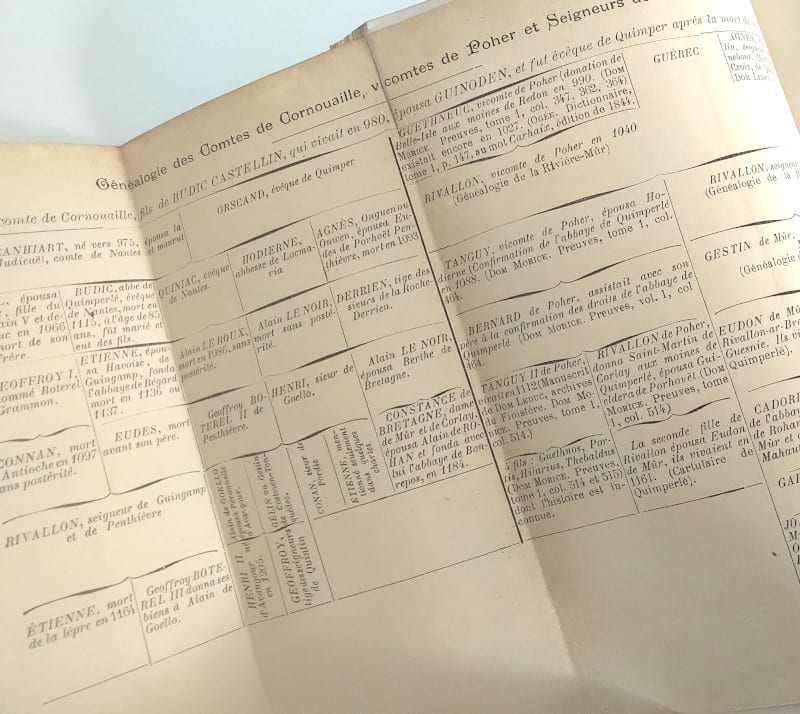 Généalogie des Comtes de Cornouaille, vicomtes de Poher et Seigneurs
comte de Cornouaille, fils de BUDIC CASTELLIN, qui vivait en 980, épousa GUINODEN, et fut évêque de Quimper après la mort de
né vers 975,
Judicaël, comte de Nantes
épousa la
et mourut
ORSCAND, évêque de Quimper
GUETHNEUC, vicomte de Poher (donation de
Belle-Isle aux moines de Redon en 990. (DOM
MORICE. Preuves, tome 1, col. 347, 362, 364)
existait encore en 1027. (OGÉE. Dictionnaire,
tome 1, p. 147, au mot Carhaix, édition de 1844.
GUÉREC
AGNÈS,
lin, seigneur
nebont.
Croix,
DOM
épousa
fille du
V et de
en 1066
mort de son
frère.
BUDIC, abbé de
Quimperlé, évêque
de Nantes, mort en
1115, à l'âge de 85
ans, fût marié et
eut des fils.
QUINIAC, évêque
de Nantes.
HODIERNE,
abbesse de Locma-
ria
AGNÈS, Onguen ou
Onwen, épousa Eu-
des de Porhoët Pen-
thièvre, mort en 1093
RIVALLON, vicomte de Poher en 1040
(Généalogie de la Rivière-Mûr)
RIVALLON,
(Généalogie de la
GEOFFROY I,
nommé Boterel
Grammon.
ETIENNE, épou-
sa Havoise, de
Guingamp, fonda
l'abbaye de Bégard
mort en 1136 ou
1137.
Alain LE ROUX,
mort en 1086, sans
postérité.
Alain LE NOIR,
mort sans posté-
rité.
DERRIEN, tige des
sieurs de la Roche-
Derrien.
TANGUY, vicomte de Poher, épousa Ho-
dierne (Confirmation de l'abbaye de Quimperlé
en 1088. (DOM MORICE. Preuves, tome 1, col.
464.
GESTIN de Mûr,
(Généalogie
CONNAN, mort
Antioche en 1097
sans postérité.
EUDES, mort
avant son père.
Geoffroy BO-
TEREL II de
Penthièvre.
HENRI, sieur de
Goello.
Alain LE NOIR,
épousa Berthe de
Bretagne.
BERNARD de Poher, assistait avec son
père à la confirmation des droits de l'abbaye de
Quimperlé (DOM MORICE. Preuves, vol. 1, col
464.
RIVALLON, seigneur de Guingamp
et de Penthièvre
Alain de GOELLO
épousa Peronnelle
GÉLIN ou Gestin
CONAN, sieur de
ETIENNE, men-
tionné seulement
dans quelques
chartes
CONSTANCE de
BRETAGNE, dame
de Mûr et de Corlay,
épousa Alain de RO-
HAN et fonda avec
lui l'abbaye de Bon-
repos, en 1184.
TANGUY II de Poher,
vivait en 1112 (Manuscrit
de DOM LEDUC, archives
du Finistère. DOM MO-
RICE. Preuves, tome 1,
col. 514.)
RIVALLON de Poher,
donna Saint-Martin de
Corlay aux moines de
Quimperlé, épousa Gui-
eldera de Porhouët (DOM
MORICE. Preuves, tome
1, col. 514)
EUDON de Mûr,
Rivallon-ar-Bro
Guesnie. Ils viv
Quimperlé).
ÉTIENNE, mort
de la lèpre en 1164
Geoffroy BOTE-
REL III donna ses
biens à Alain de
Goello.
HENRI II né
d'Avaugour
en 1205.
GEOFFROY,
tige des seigneurs
de Quintin
4 fils : Guethnos, Por-
tis, Hilarius, Thebaldus
(DOM MORICE. Preuves,
tome 1, col. 514 et 515)
dont l'histoire est in-
connue.
La seconde fille de
Rivallon épousa Eudon
de Mûr, ils vivaient en
1161. (Cartulaire de
Quimperlé).
CADORE
de Rohan
Mûr et
Mahaud